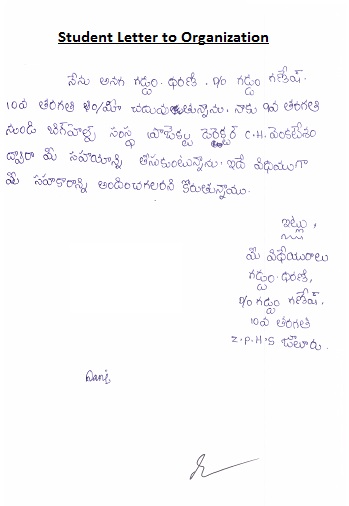 Student Letter to Organization
నేను అనగా గడ్డం. ధరణి. D/o గడ్డం గణేష్.
10వ తరగతి చదువుతున్నాను. నాకు 9వ తరగతి
నుండి బిగ్‌హెల్ప్ సంస్థ ప్రాజెక్టు డైరెక్టర్ C.H. వెంకటేశం
ద్వారా మీ సహాయాన్ని తీసుకుంటున్నాను. ఇదే విధముగా
మీ సహకారాన్ని అందించగలరని కోరుతున్నాము.
ఇట్లు,
మీ విధేయురాలు
గడ్డం. ధరణి,
D/o గడ్డం గణేష్.
10వ తరగతి
Z.P.H.S జౌలూరు.